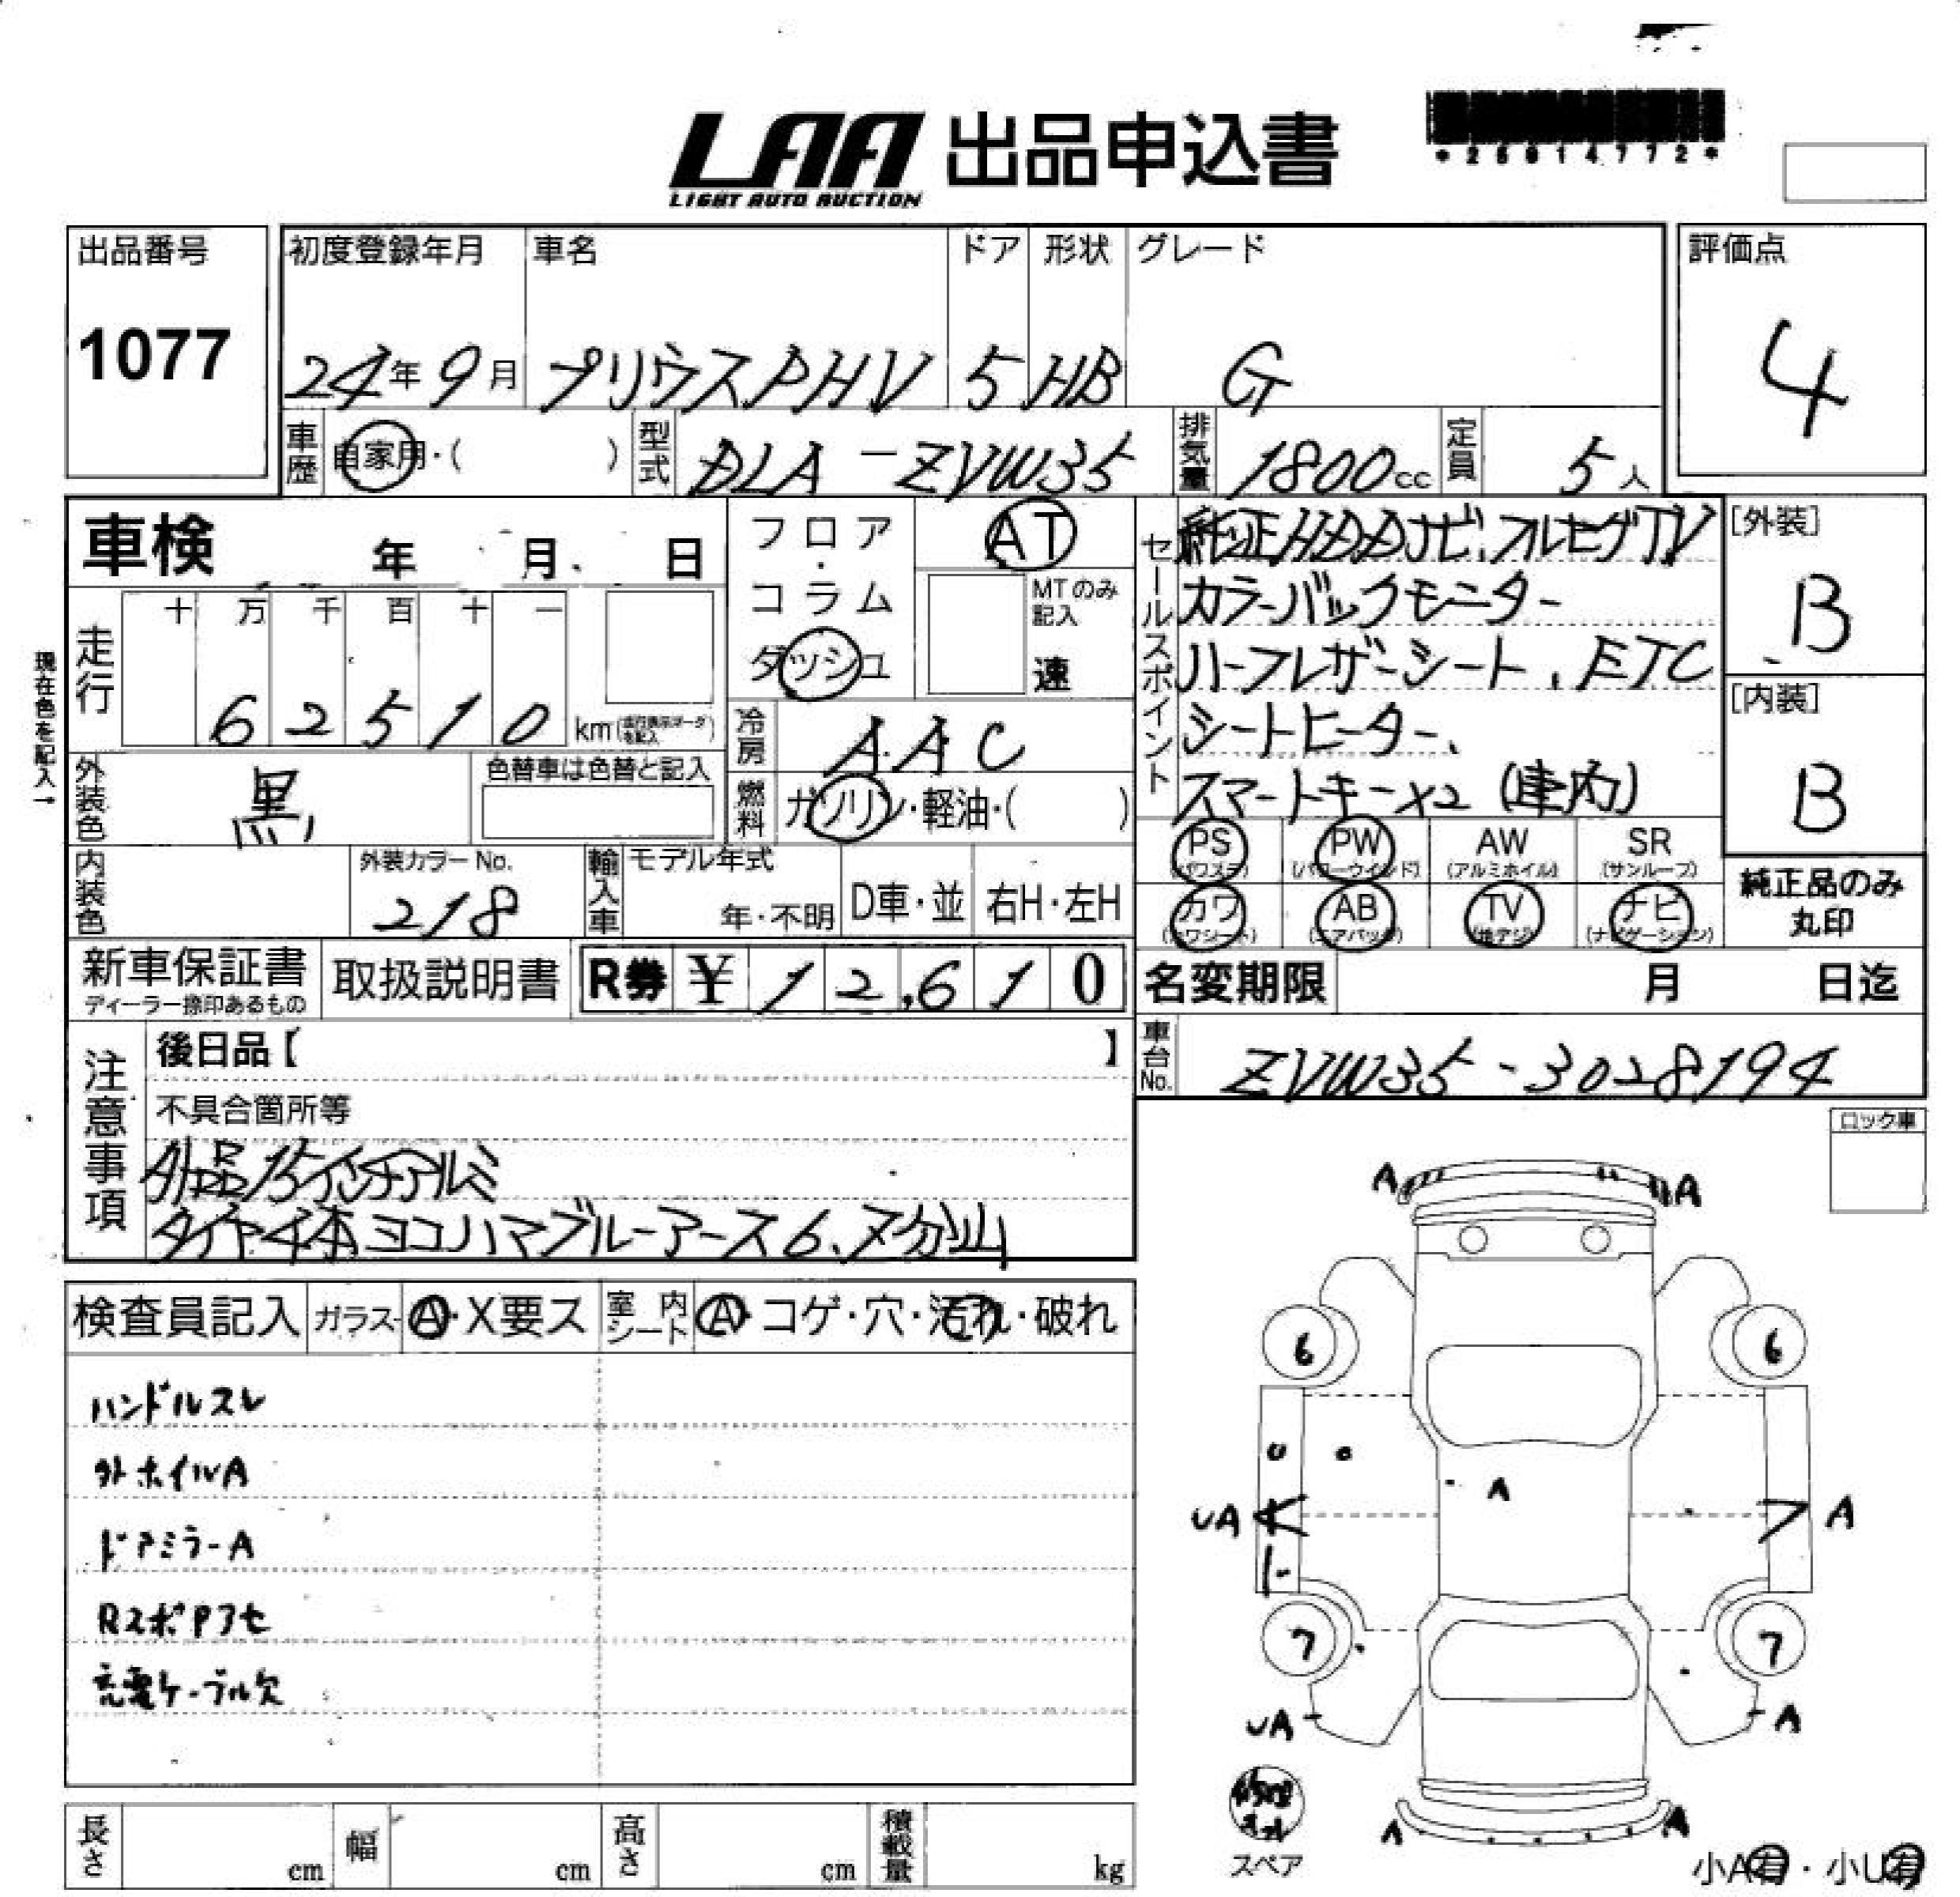 LAA 出品申込書
LIGHT AUTO AUCTION
*25914772*
出品番号
1077
初度登録年月 車名 ドア 形状 グレード
24年9月 プリウスPHV 5 HB G
評価点
4
車歴 自家用・( ) 型式 DLA-ZVW35 排気量 1800cc 定員 5人
車検 年 月 日
現在色を記入→
走行 十 万 千 百 十 一
62510 km
フロア・コラム
ダッシュ
AT
MTのみ記入
速
冷房 AAC
燃料 ガソリン・軽油・( )
セールスポイント
純正HDDナビ、フルセグTV
カラーバックモニター
ハーフレザーシート、ETC
シートヒーター、
スマートキー×2 (車内)
[外装]
B
[内装]
B
外装色 黒 色替車は色替と記入
内装色 外装カラーNo. 218
輸入車 モデル年式 年・不明 D車・並 右H・左H
PS (パワステ) PW (パワーウインド) AW (アルミホイル) SR (サンルーフ)
カワ (カワシート) AB (エアバッグ) TV (地デジ) ナビ (ナビゲーション)
純正品のみ
丸印
新車保証書 ディーラー捺印あるもの 取扱説明書 R券 ¥12,610
名変期限 月 日迄
車台No. ZVW35-3028194
注意事項
後日品【 】
不具合箇所等
外品15インチアルミ
タイヤ4本ヨコハマブルーアース6、7分山
ロック車
検査員記入 ガラス A・X要ス 室内シート A・コゲ・穴・汚れ・破れ
ハンドルスレ
外ホイルA
ドアミラーA
RスポPフセ
充電ケーブル欠
A A
6 6
A
UA A
7 7
UA A
A A
スペア
小A有・小U有
長さ cm 幅 cm 高さ cm 積載量 kg